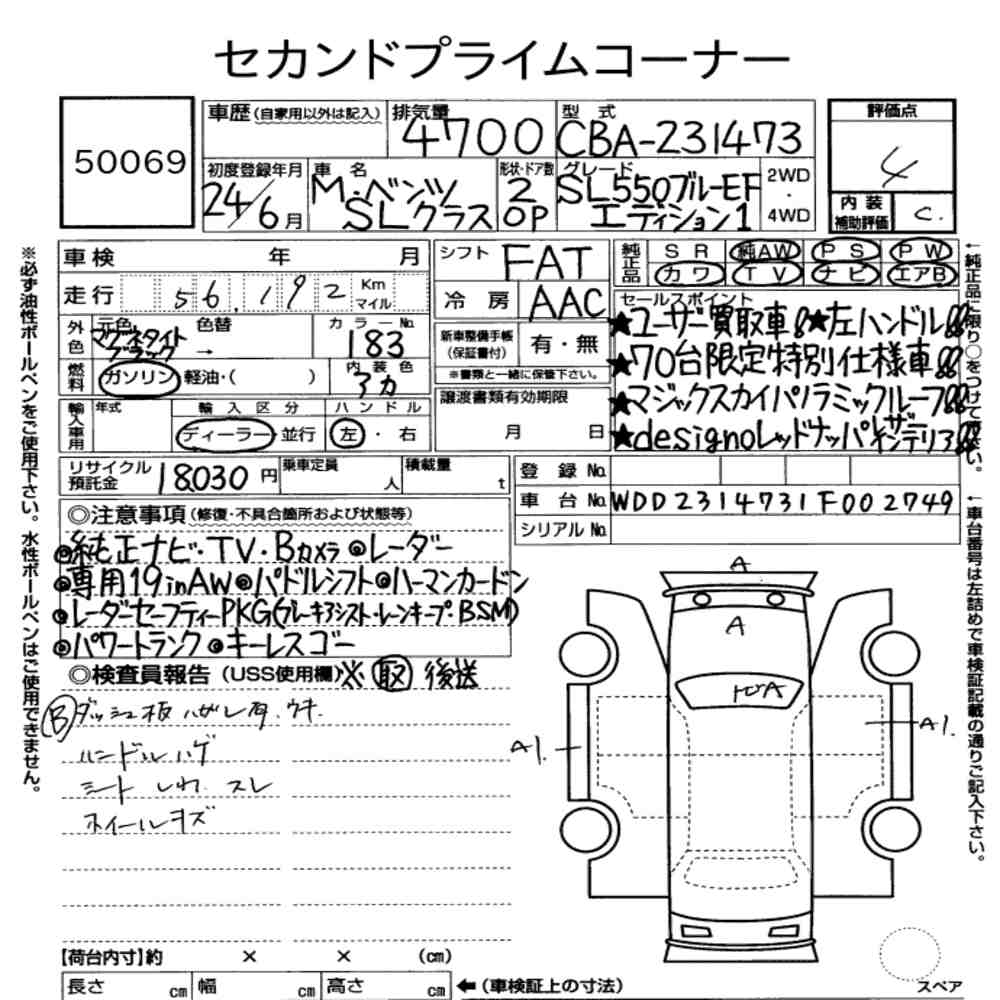 セカンドプライムコーナー
50069
車歴 (自家用以外は記入)
排気量 4700
型式 CBA-231473
評価点 4
内装補助評価 C.
初度登録年月 24/6月
車名 M・ベンツ SLクラス
形状・ドア数 2 OP
グレード SL550ブルーEF エディション1
2WD ・ 4WD
車検 年 月
走行 56,192 Km マイル
外色 元色 マグネタイトブラック 色替 →
カラーNo. 183
燃料 ガソリン 軽油・( )
内装色 アカ
輸入車用 年式
輸入区分 ディーラー・並行
ハンドル 左・右
シフト FAT
冷房 AAC
新車整備手帳 (保証書付) 有・無
※書類と一緒に保管下さい。
譲渡書類有効期限
月 日
純正品 SR 純AW PS PW
カワ TV ナビ エアB
セールスポイント
★ユーザー買取車!!★左ハンドル!!
★70台限定特別仕様車!!
★マジックスカイパノラミックルーフ!!
★designoレッドナッパインテリア!!
リサイクル預託金 18,030円
乗車定員 人
積載量 t
登録No.
車台No. WDD2314731F002749
シリアルNo.
◎注意事項 (修復・不具合箇所および状態等)
◎純正ナビ・TV・Bカメラ◎レーダー
◎専用19inAW◎パドルシフト◎ハーマンカードン
◎レーダーセーフティーPKG(ブレーキアシスト・レーンキープ・BSM)
◎パワートランク◎キーレスゴー
◎検査員報告 (USS使用欄) ※ 取 後送
B ダッシュ板 ハガレ有 ウキ
ハンドルハゲ
シート しわ スレ
ホイールキズ
A
A
トビA
A1.
A1.
【荷台内寸】約 × × (cm)
長さ cm 幅 cm 高さ cm ←(車検証上の寸法)
スペア
※必ず油性ボールペンをご使用下さい。水性ボールペンはご使用できません。
←純正品に限り○をつけて下さい。
←車台番号は左詰めで車検証記載の通りご記入下さい。